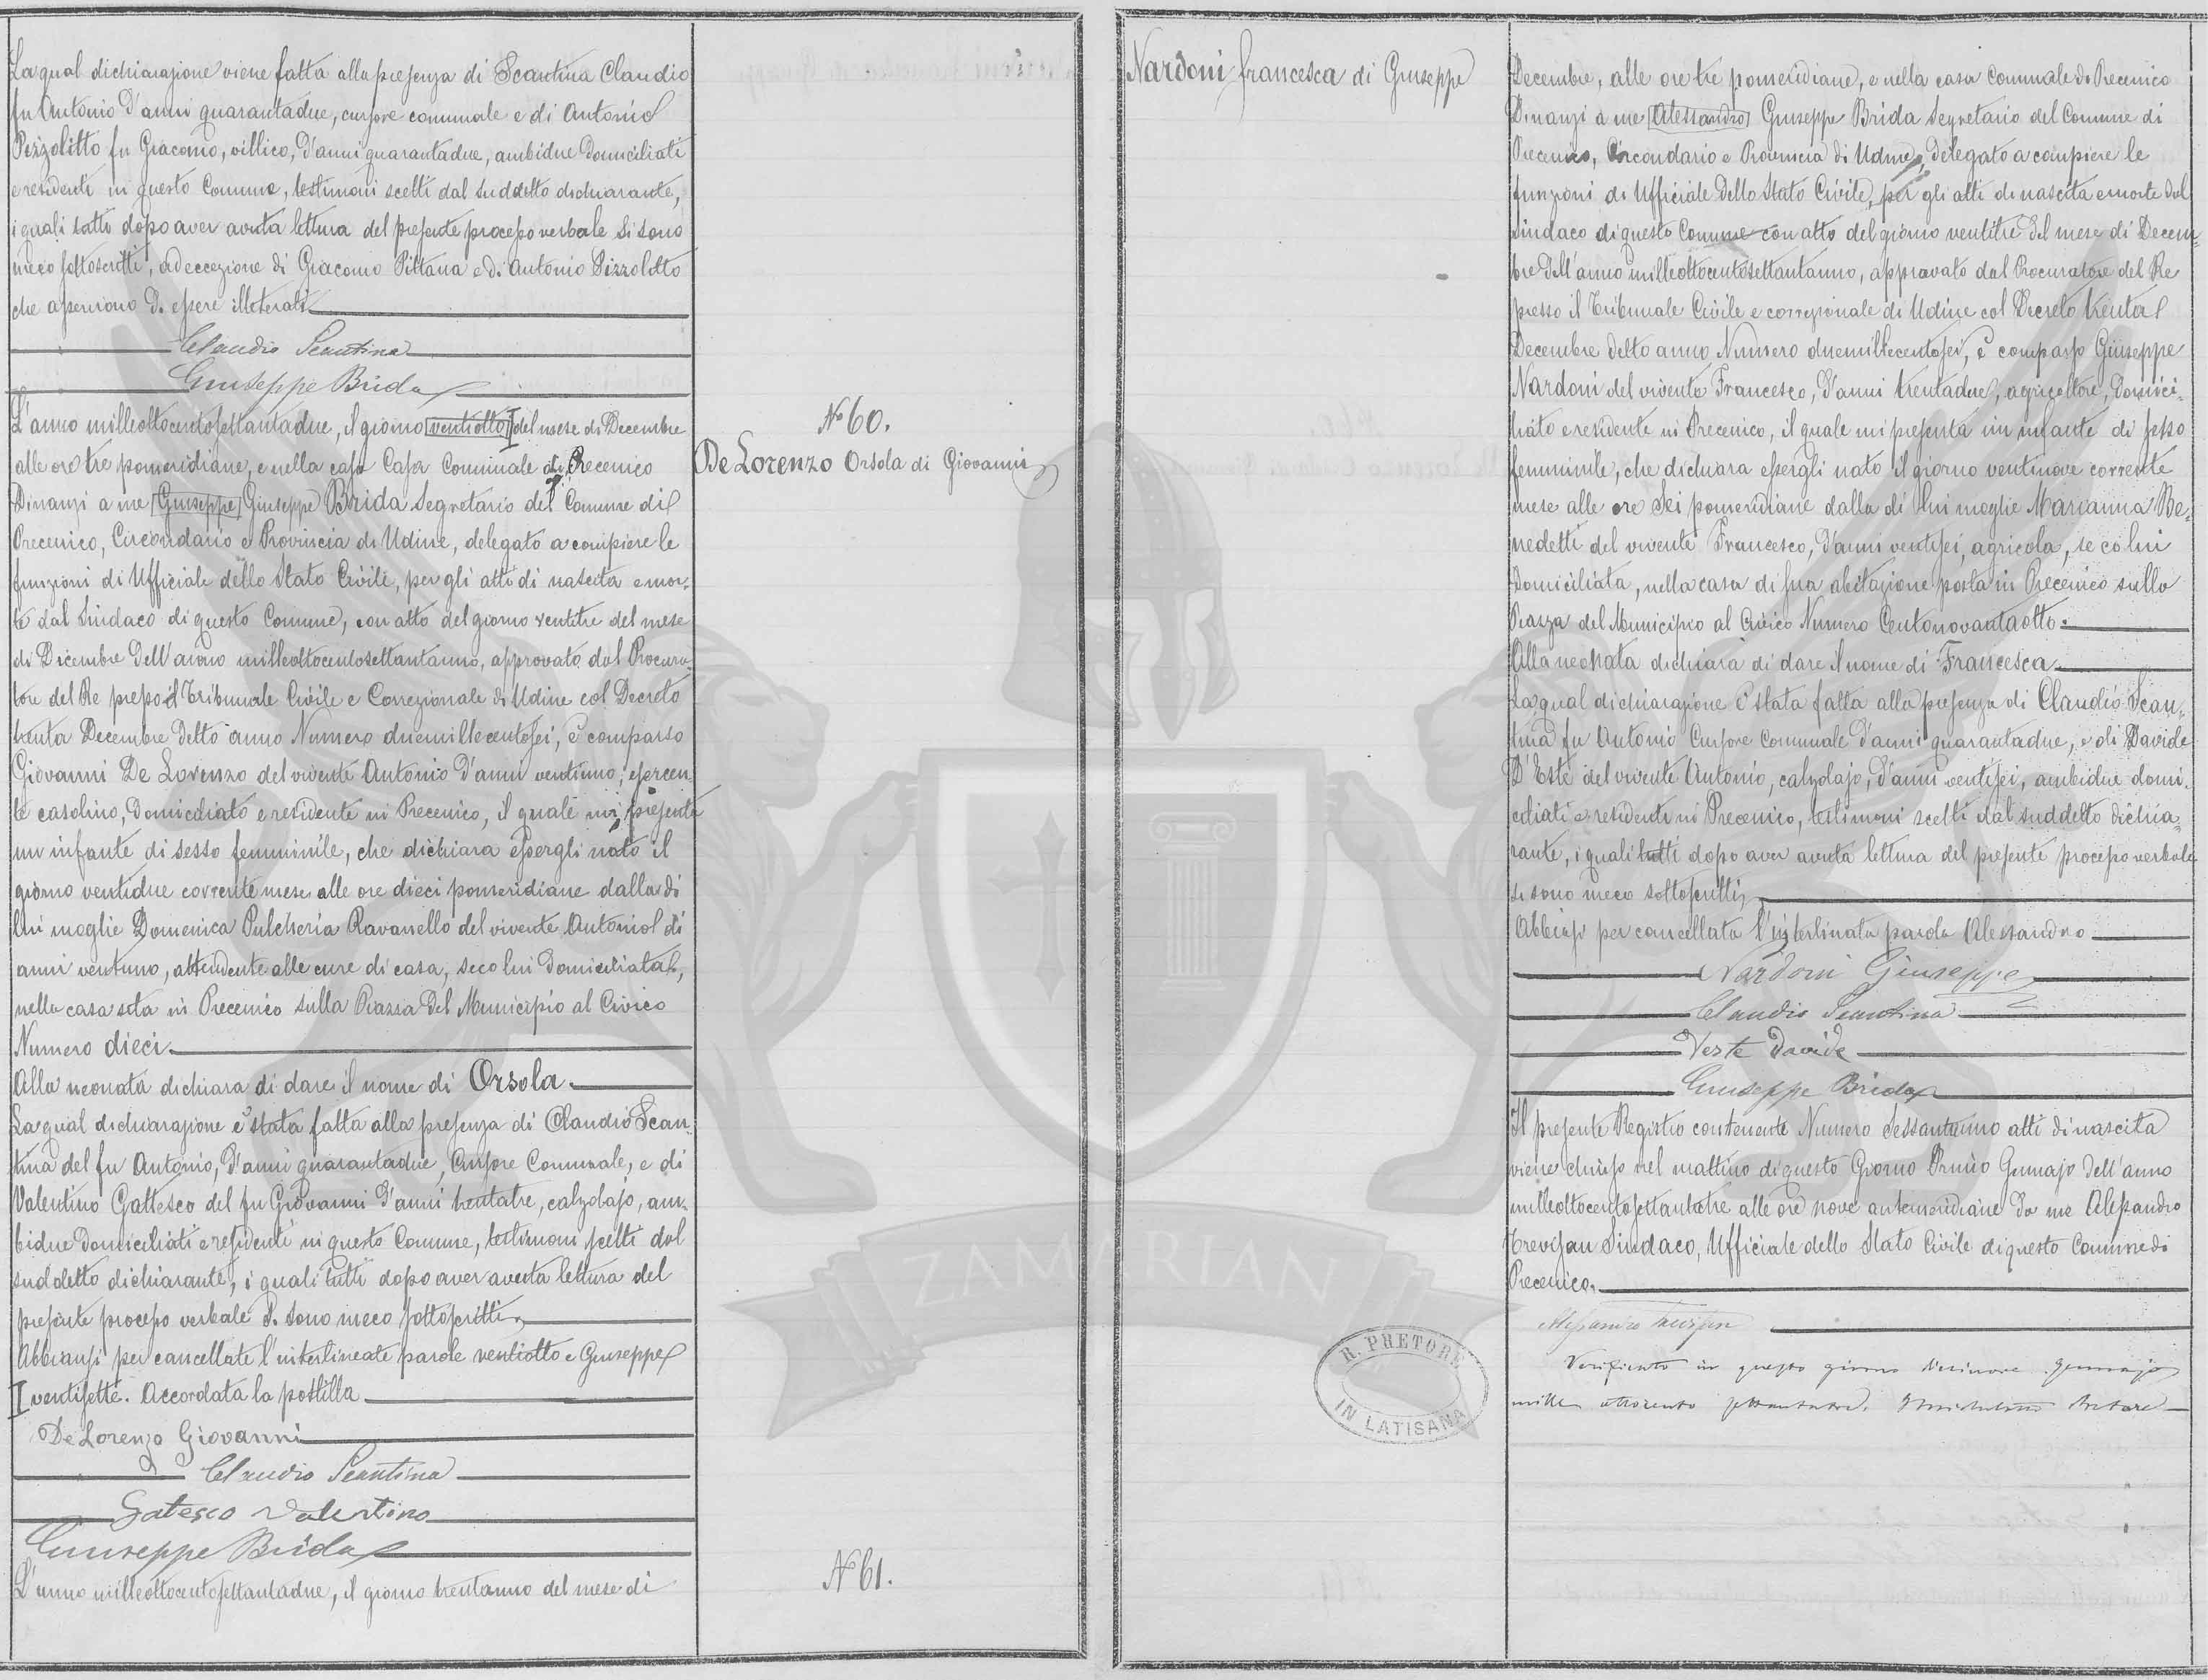 La qual dichiarazione viene fatta alla presenza di Scantina Claudio
fu Antonio d'anni quarantadue, cursore comunale e di Antonio
Pizzolitto fu Giacomo, villico, d'anni quarantadue, ambidue domiciliati
e residenti in questo Comune, testimoni scelti dal suddetto dichiarante,
i quali tutti dopo aver avuta lettura del presente processo verbale si sono
meco sottoscritti, ad eccezione di Giacomo Pittana e di Antonio Pizzolitto
che asserirono di essere illeterati
Claudio Scantina
Giuseppe Brida
L'anno milleottocentosettantadue, il giorno ventiotto I del mese di Decembre
alle ore tre pomeridiane, e nella casa Casa Comunale di Precenico
Dinanzi a me Giuseppe Giuseppe Brida Segretario del Comune di
Precenico, Circondario e Provincia di Udine, delegato a compiere le
funzioni di Ufficiale dello Stato Civile, per gli atti di nascita e mor-
te dal Sindaco di questo Comune, con atto del giorno ventitre del mese
di Dicembre dell'anno milleottocentosettantauno, approvato dal Procura-
tore del Re presso il Tribunale Civile e Correzionale di Udine col Decreto
trenta Decembre detto anno Numero duemillecentosei, è comparso
Giovanni De Lorenzo del vivente Antonio d'anni ventiuno, esercen-
te casolino, domiciliato e residente in Precenico, il quale mi presenta
un infante di sesso femminile, che dichiara essergli nato il
giorno ventidue corrente mese alle ore dieci pomeridiane dalla di
lui moglie Domenica Pulcheria Ravanello del vivente Antonio di
anni ventuno, attendente alle cure di casa, seco lui domiciliata,
nella casa sita in Precenico sulla Piazza del Municipio al Civico
Numero dieci.
Alla neonata dichiara di dare il nome di Orsola.
La qual dichiarazione è stata fatta alla presenza di Claudio Scan-
tina del fu Antonio, d'anni quarantadue, Cursore Comunale, e di
Valentino Gattesco del fu Giovanni d'anni trentatre, calzolajo, am-
bidue domiciliati e residenti in questo Comune, testimoni scelti dal
suddetto dichiarante, i quali tutti dopo aver avuta lettura del
presente processo verbale si sono meco sottoscritti.
Abbiansi per cancellate l'interlineate parole ventiotto e Giuseppe
I ventisette. Accordata la postilla
De Lorenzo Giovanni
Claudio Scantina
Gatesco Valentino
Giuseppe Brida
L'anno milleottocentosettantadue, il giorno trentauno del mese di
No 60.
De Lorenzo Orsola di Giovanni
No 61.
Nardoni francesca di Giuseppe
Decembre, alle ore tre pomeridiane, e nella casa Comunale di Precenico
Dinanzi a me Alessandro Giuseppe Brida Segretario del Comune di
Precenico, Circondario e Provincia di Udine, delegato a compiere le
funzioni di Ufficiale dello Stato Civile, per gli atti di nascita e morte dal
Sindaco di questo Comune con atto del giorno ventitre del mese di Decem-
bre dell'anno milleottocentosettantauno, approvato dal Procuratore del Re
presso il Tribunale Civile e correzionale di Udine col Decreto trenta
Decembre detto anno Numero duemillecentosei, è comparso Giuseppe
Nardoni del vivente Francesco, d'anni trentadue, agricoltore, domici-
liato e residente in Precenico, il quale mi presenta un infante di sesso
femminile, che dichiara essergli nato il giorno ventinove corrente
mese alle ore sei pomeridiane dalla di lui moglie Marianna Be-
nedetti del vivente Francesco, d'anni ventisei, agricola, seco lui
domiciliata, nella casa di sua abitazione posta in Precenico sulla
Piazza del Municipio al Civico Numero Centonovantaotto.
Alla neonata dichiara di dare il nome di Francesca.
La qual dichiarazione è stata fatta alla presenza di Claudio Scan-
tina fu Antonio Cursore Comunale d'anni quarantadue, e di Davide
D'Este del vivente Antonio, calzolajo, d'anni ventisei, ambidue domi-
ciliati e residenti in Precenico, testimoni scelti dal suddetto dichia-
rante, i quali tutti dopo aver avuta lettura del presente processo verbale
si sono meco sottoscritti,
Abbiasi per cancellata l'interlinata parola Alessandro
Nardoni Giuseppe
Claudio Scantina
Deste Davide
Giuseppe Brida
Il presente Registro contenente Numero Sessantauno atti di nascita
viene chiuso nel mattino di questo Giorno Primo Gennajo dell'anno
milleottocentosettantatre alle ore nove antemeridiane da me Alessandro
Trevisan Sindaco, Ufficiale dello Stato Civile di questo Comune di
Precenico.
Alessandro Trevisan
Verificato in questo giorno diecinove Gennajo
mille ottocento settantatre. Pretore
R. PRETORE
IN LATISANA
ZAMBRIAN